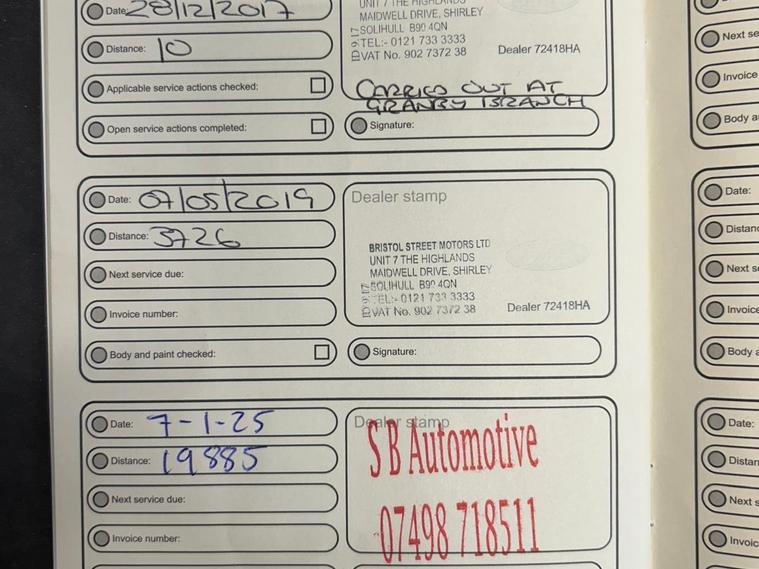 Date: 28/12/2017
UNIT 7 THE HIGHLANDS
MAIDWELL DRIVE, SHIRLEY
SOLIHULL B90 4QN
TEL:- 0121 733 3333
VAT No. 902 7372 38
Dealer 72418HA
Distance: 10
Applicable service actions checked:
CARRIED OUT AT
GRANBY BRANCH
Open service actions completed:
Signature:
Date: 07/05/2019
Dealer stamp
Distance: 3726
BRISTOL STREET MOTORS LTD
UNIT 7 THE HIGHLANDS
MAIDWELL DRIVE, SHIRLEY
SOLIHULL B90 4QN
TEL:- 0121 733 3333
VAT No. 902 7372 38
Dealer 72418HA
Next service due:
Invoice number:
Body and paint checked:
Signature:
Date: 7-1-25
Dealer stamp
S B Automotive
07498 718511
Distance: 19885
Next service due:
Invoice number:
Next se
Invoice
Body a
Date:
Distanc
Next se
Invoice
Body a
Date:
Distan
Next s
Invoic